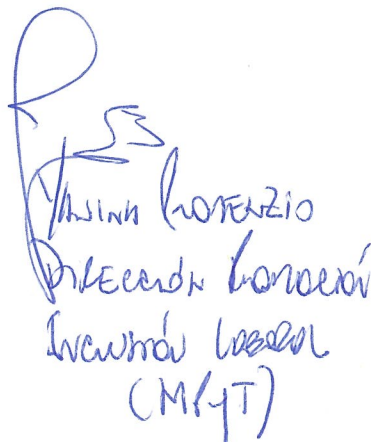 Yanina Lorenzio
Dirección Promoción
Inclusión Laboral
(MPyT)